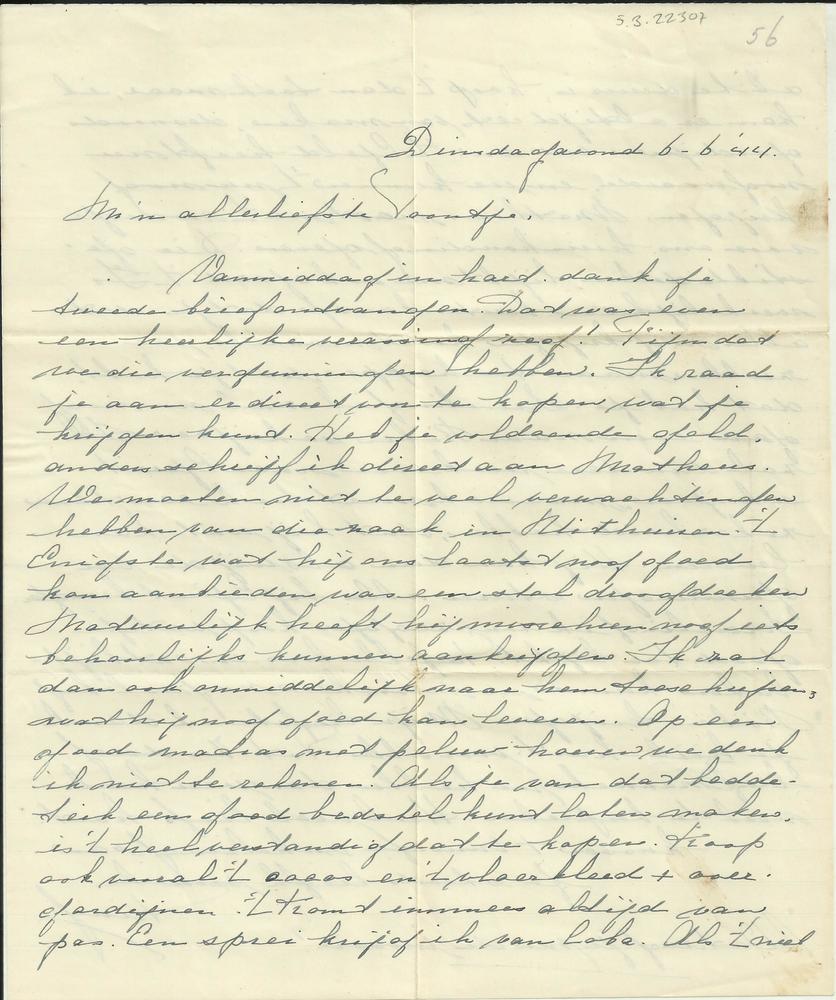 5.3.22307
56
Dinsdagavond 6-6 '44.
M'n allerliefste Toontje.
Vanmiddag in hart. dank je
tweede brief ontvangen. Dat was even
een heerlijke verassing zeg! Fijn dat
we die vergunningen hebben. Ik raad
je aan er direct van te kopen wat je
krijgen kunt. Heb je voldoende geld,
anders schrijf ik direct aan Matheus.
We moeten niet te veel verwachtingen
hebben van die zaak in Uithuizen. 't
Enigste wat hij ons laatst nog goed
kon aanbieden was een stel droogdoeken
Natuurlijk heeft hij misschien nog iets
behoorlijks kunnen aankrijgen. Ik zal
dan ook onmiddelijk naar hem toeschrijven,
wat hij nog goed kan leveren. Op een
goed madras met peluw hoeven we denk
ik niet te rekenen. Als je van dat bedde-
tiek een goed bedstel kunt laten maken,
is 't heel verstandig dat te kopen. Koop
ook vooral 't cocos en 't vloerkleed + over.
gordijnen. 't Komt immers altijd van
pas. Een sprei krijg ik van Coba. Als 't niet